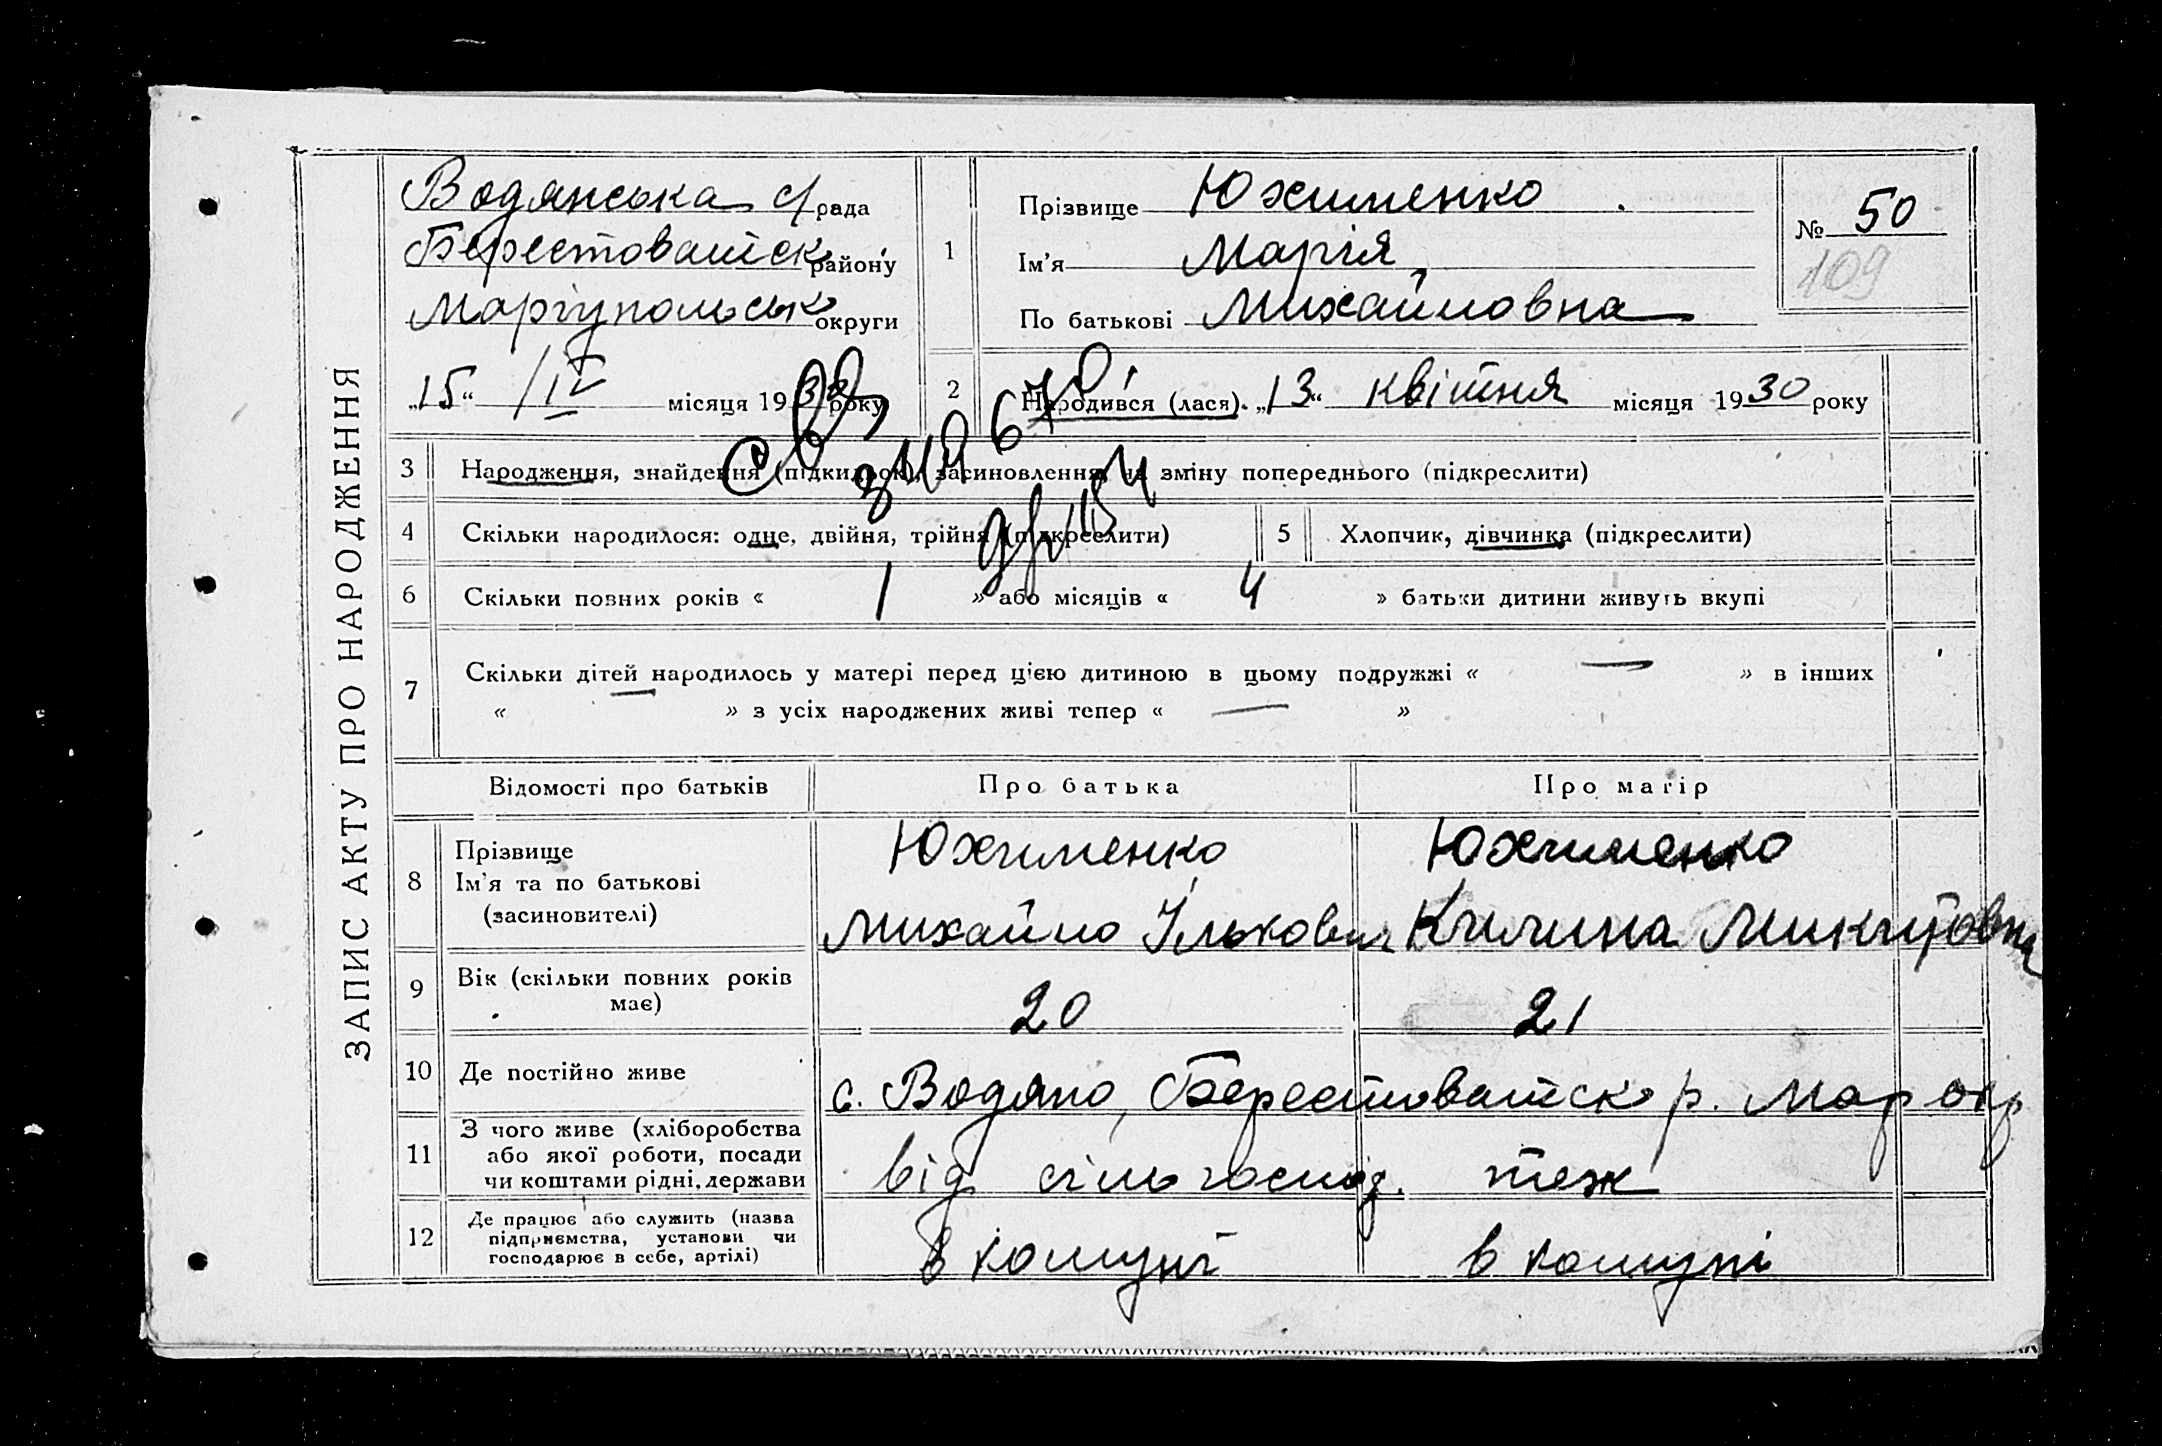 ЗАПИС АКТУ ПРО НАРОДЖЕННЯ
Водянська с/рада
Берестоватськ району
Маріупольськ округи
„15“ /IV місяця 1930 року
1
Прізвище Юхименко
Ім'я Марія
По батькові Михайловна
№ 50
109
2 Народився (лася). „13“ квітня місяця 1930 року
3 Народження, знайдення (підкидьок), засиновлення, на зміну попереднього (підкреслити)
4 Скільки народилося: одне, двійня, трійня (підкреслити)
5 Хлопчик, дівчинка (підкреслити)
6 Скільки повних років « 1 » або місяців « 4 » батьки дитини живуть вкупі
7 Скільки дітей народилось у матері перед цією дитиною в цьому подружжі « — » в інших
« — » з усіх народжених живі тепер « — »
Відомості про батьків Про батька Про матір
8 Прізвище
Ім'я та по батькові
(засиновителі)
Юхименко
Михайло Ількович
Юхименко
Килина Микитовна
9 Вік (скільки повних років
має)
20 21
10 Де постійно живе
с. Водяно, Берестоватськ р. Мар окр
11 З чого живе (хліборобства
або якої роботи, посади
чи коштами рідні, держави
від сільгоспод. теж
12 Де працює або служить (назва
підприємства, установи чи
господарює в себе, артілі)
в комуні в комуні